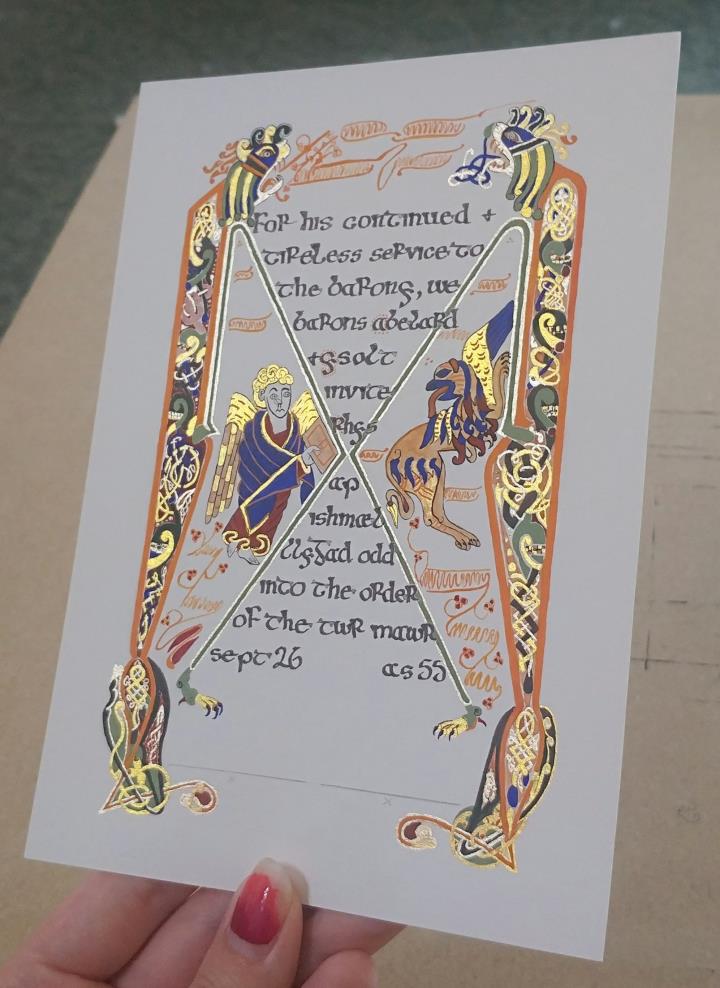 For his continued +
tireless service to
the barons, we
barons abelard
+ gsolt
invite
Rhys
ap
ishmael
odd
into the order
of the twr mawr
sept 26 as 55